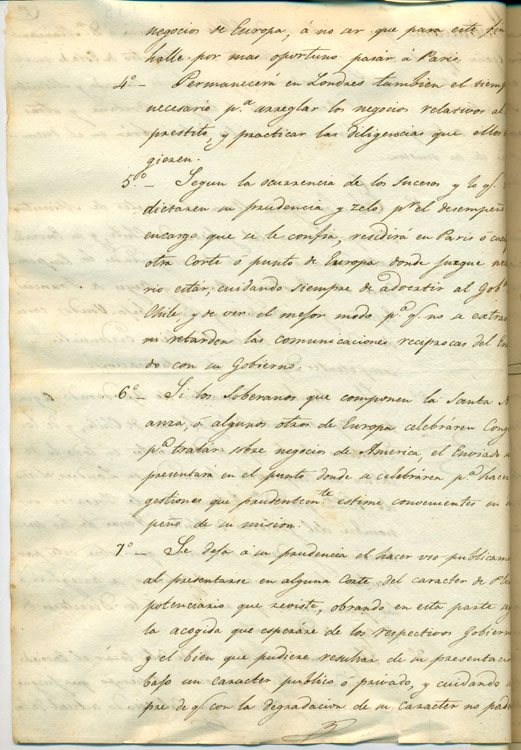 negocios de Europa, á no ser que para este fin
halle por mas oportuno pasár á Paris.
4.º — Permanecerá en Londres tambien el tiemp
necesario p.ª arreglar los negocios relativos al
prestito, y practicar las diligencias que ellos
gieren.
5.º — Segun la ocurrencia de los sucesos y lo q.
dictaren su prudencia y zelo p.r el desempeñ
encargo que se le confia, residirá en Paris ó cual
otra Corte ó punto de Europa donde juzgue nec
rio estar, cuidando siempre de advertir al Gobno
Chile, y de ver el mejor modo p.ª q. no se extra
ni retarden las comunicaciones reciprocas del En
do con su Gobierno.
6.º — Si los Soberanos que componen la Santa A
anza, ó algunos otros de Europa celebráren Cong
p.ª tratár sobre negocios de America, el Enviado se
presentará en el punto donde se celebráren p.ª hacer
gestiones que prudentem.te estime convenientes en
peño de su mision.
7.º — Se deja á su prudencia el hacer uso publicame
al presentarse en alguna Corte, del caracter de Ple
potenciario que reviste, obrando en esta parte
la acogida que esperare de los respectivos Gobiern
y el bien que pudiere resultar de su presentaci
bajo un caracter publico ó privado, y cuidando
pre de q. con la degradacion de su caracter no pad